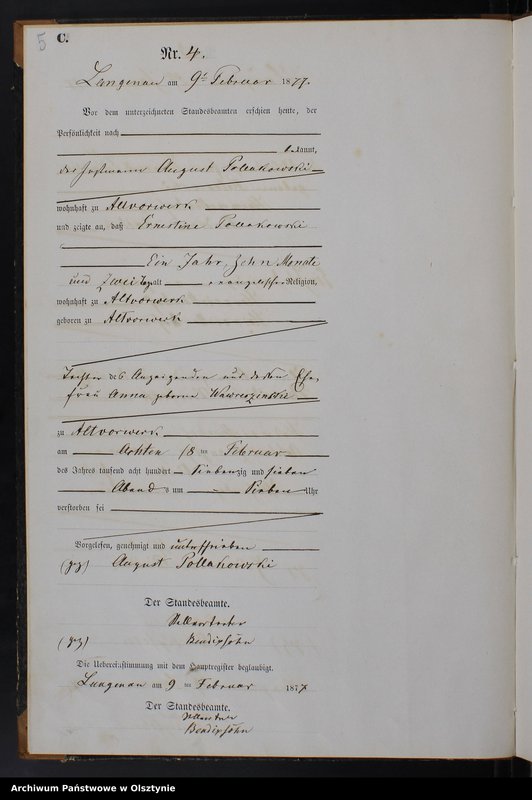 5
C.
Nr. 4.
Langenau am 9t Februar 1877.
Vor dem unterzeichneten Standesbeamten erschien heute, der
Persönlichkeit nach
bekannt,
der Instmann August Pollakowski
wohnhaft zu Altvorwerk
und zeigte an, daß Ernestine Pollakowski
Ein Jahr, zehn Monate
und zwei Tage alt evangelischer Religion,
wohnhaft zu Altvorwerk
geboren zu Altvorwerk
Tochter des Anzeigenden und dessen Ehe-
frau Anna geborene
zu Altvorwerk
am Achten /8 ten Februar
des Jahres tausend acht hundert siebenzig und sieben
Abend s um Sieben Uhr
verstorben sei
Vorgelesen, genehmigt und unterschrieben
(gez) August Pollakowski
Der Standesbeamte.
(gez)
Die Uebereinstimmung mit dem Hauptregister beglaubigt.
Langenau am 9 ten Februar 1877
Der Standesbeamte.
Archiwum Państwowe w Olsztynie